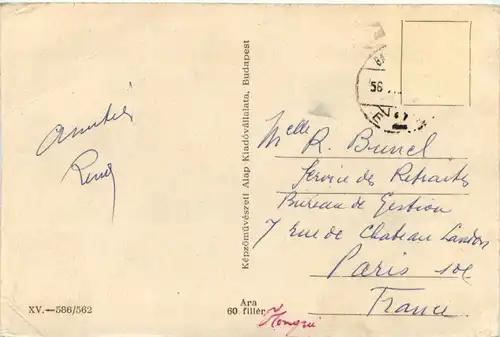 Amitiés
René
Képzőművészeti Alap Kiadóvállalata, Budapest
56
Melle R. Bunel
Service des Retraites
Bureau de Gestion
7 rue de Chateau Landon
Paris 10e
France
XV.—586/562
Ára
60 fillér
Hongrie